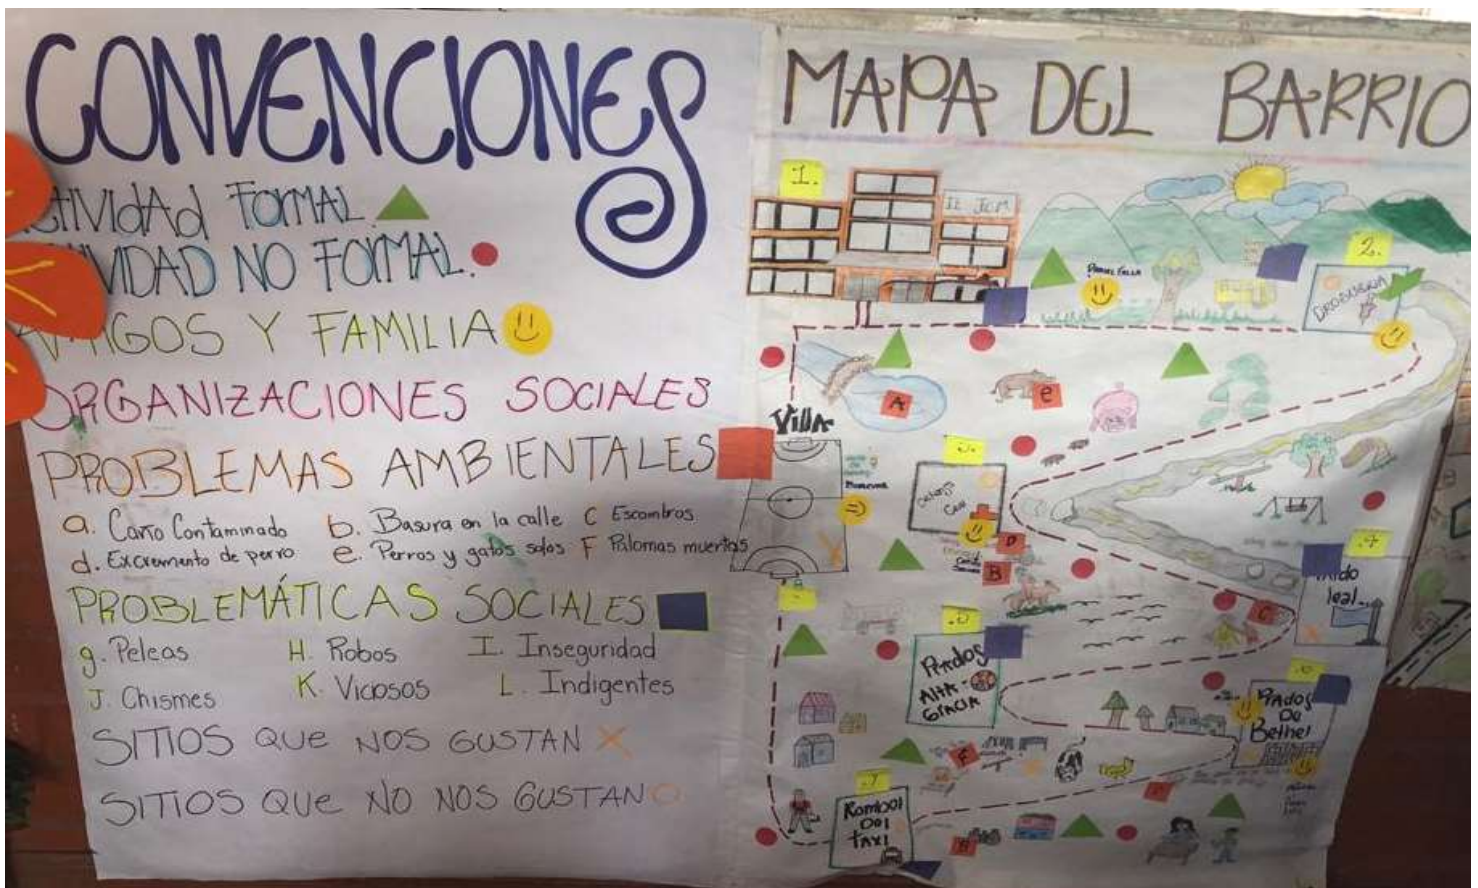 CONVENCIONES
TIVIDAd FORMAL.
VIDAD NO FORMAL.
IGOS Y FAMILIA
ORGANIZACIONES SOCIALES
PROBLEMAS AMBIENTALES
a. Caño Contaminado b. Basura en la calle C Escombros
d. Excremento de perro e. Perros y gatos solos F Palomas muertas
PROBLEMÁTICAS SOCIALES
g. Peleas H. Robos I. Inseguridad
J. Chismes K. Viciosos L. Indigentes
SITIOS QUE NOS GUSTAN X
SITIOS QUE NO NOS GUSTAN O
MAPA DEL BARRIO
1.
2.
DROGUERIA
A
e
Villa
D
B
C
leal
PRADOS
ALTA-
GRACIA
PRADOS
DE
Bethel
F
Romboi
Del
TAXI
B